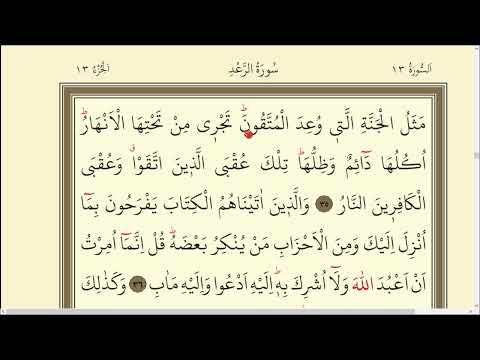 اَلسُّورَةُ ١٣ سُورَةُ الرَّعْدِ اَلْجُزْءُ ١٣
مَثَلُ الْجَنَّةِ الَّتٖي وُعِدَ الْمُتَّقُونَؕ تَجْرٖي مِنْ تَحْتِهَا الْاَنْهَارُؕ
اُكُلُهَا دَٓائِمٌ وَظِلُّهَاؕ تِلْكَ عُقْبَى الَّذٖينَ اتَّقَوْاۗ وَعُقْبَى
الْكَافِرٖينَ النَّارُ ﴿٣٥﴾ وَالَّذٖينَ اٰتَيْنَاهُمُ الْكِتَابَ يَفْرَحُونَ بِمَٓا
اُنْزِلَ اِلَيْكَ وَمِنَ الْاَحْزَابِ مَنْ يُنْكِرُ بَعْضَهُؕ قُلْ اِنَّمَٓا اُمِرْتُ
اَنْ اَعْبُدَ اللّٰهَ وَلَٓا اُشْرِكَ بِهٖؕ اِلَيْهِ اَدْعُوا وَاِلَيْهِ مَاٰبِ ﴿٣٦﴾ وَكَذٰلِكَ